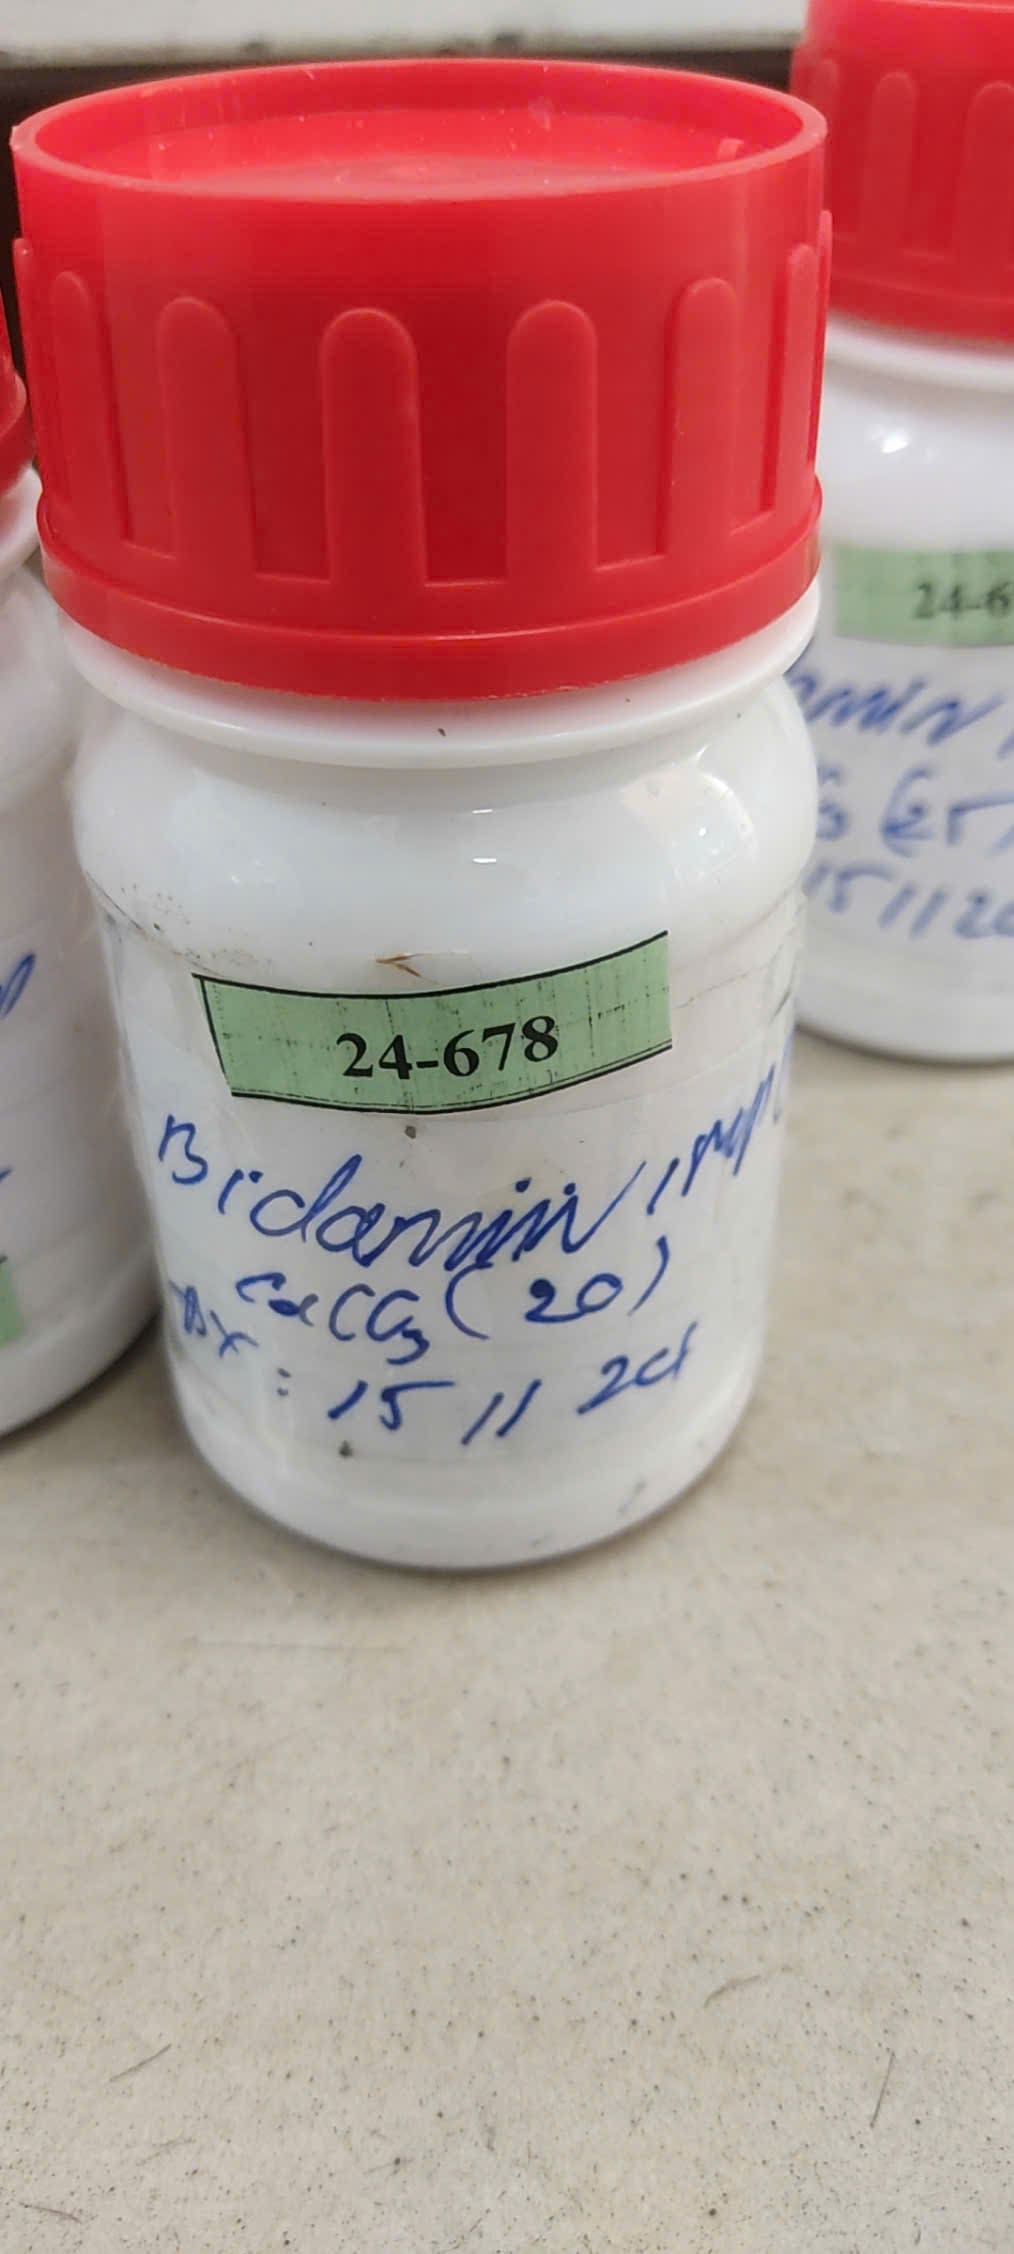 24-678
Bidamin
CaCO3 (20)
: 15 11 24
24-6
amin
15 11 2